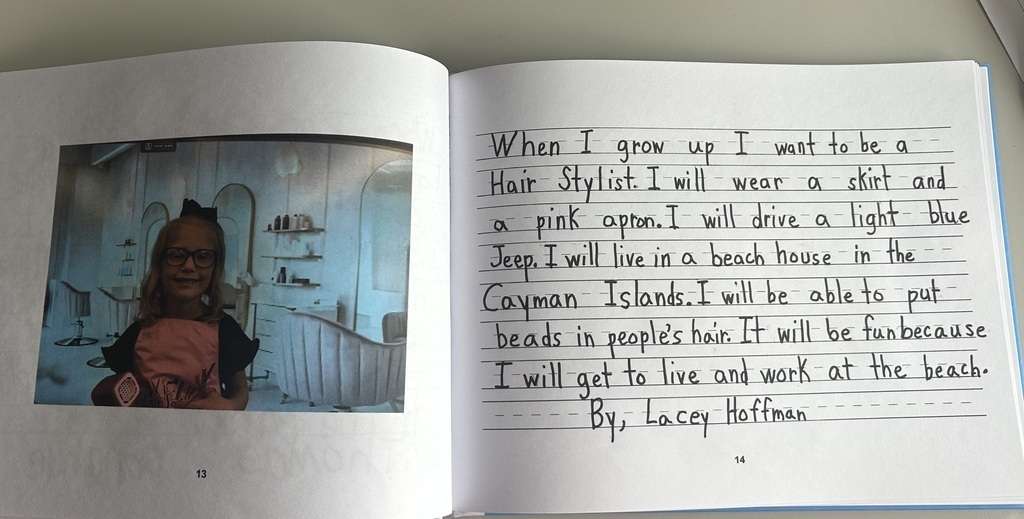 When I grow up I want to be a
Hair Stylist. I will wear a skirt and
a pink apron. I will drive a light blue
Jeep. I will live in a beach house in the
Cayman Islands. I will be able to put
beads in people's hair. It will be fun because
I will get to live and work at the beach.
By, Lacey Hoffman
13
14